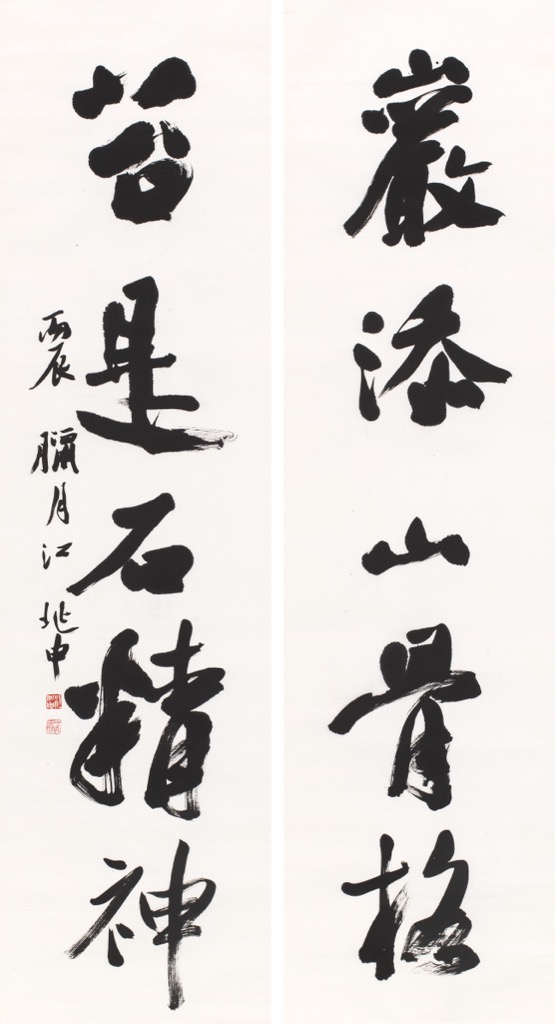 巖添山骨格
苔是石精神
丙辰臘月江兆申